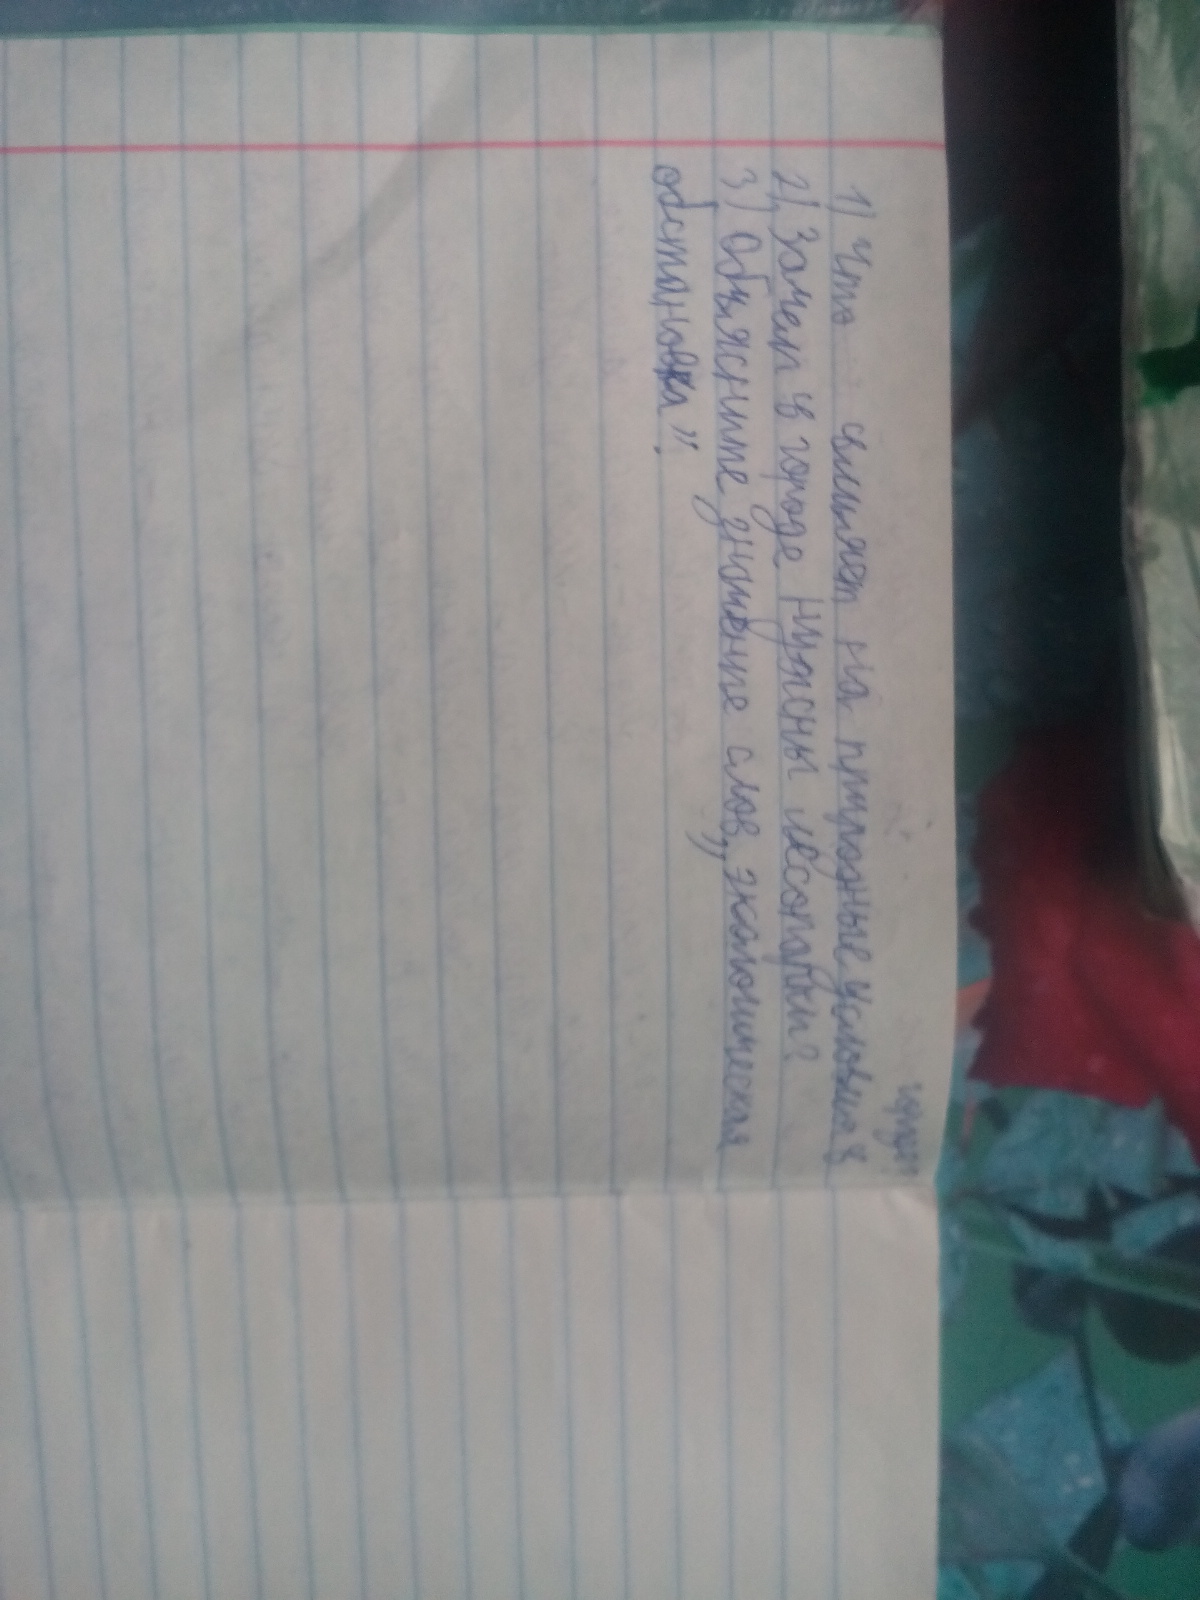 1) Что влияет на природные условия в
городе
2) Зачем в городе нужны лесопарки?
3) Объясните значение слов „экологическая
обстановка".